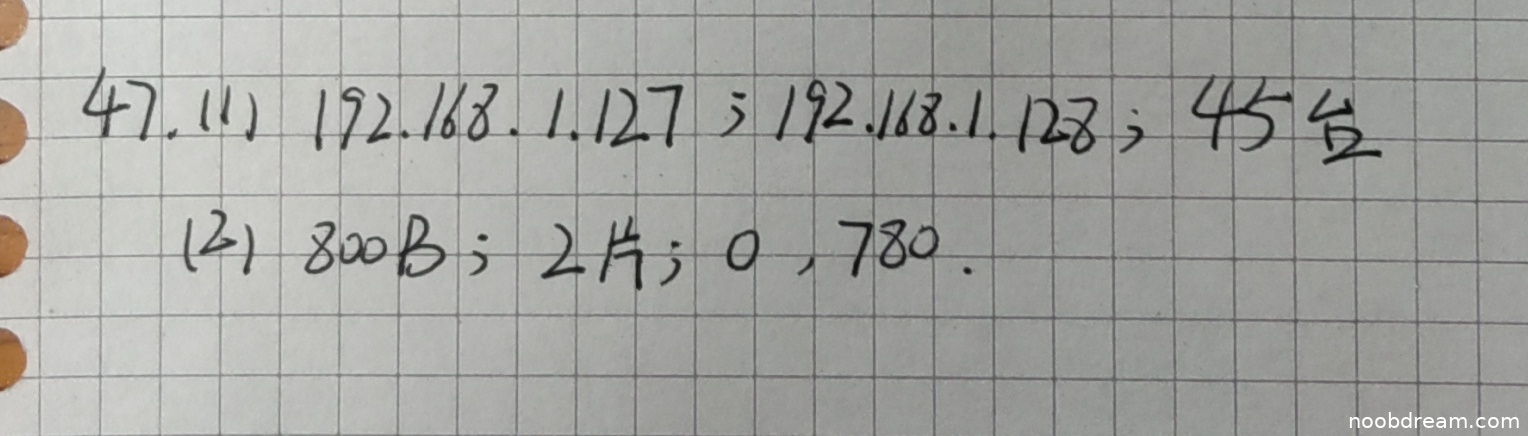 47.(1) 192.168.1.127；192.168.1.128；45台
(2) 800B；2片；0，780.
noobdream.com